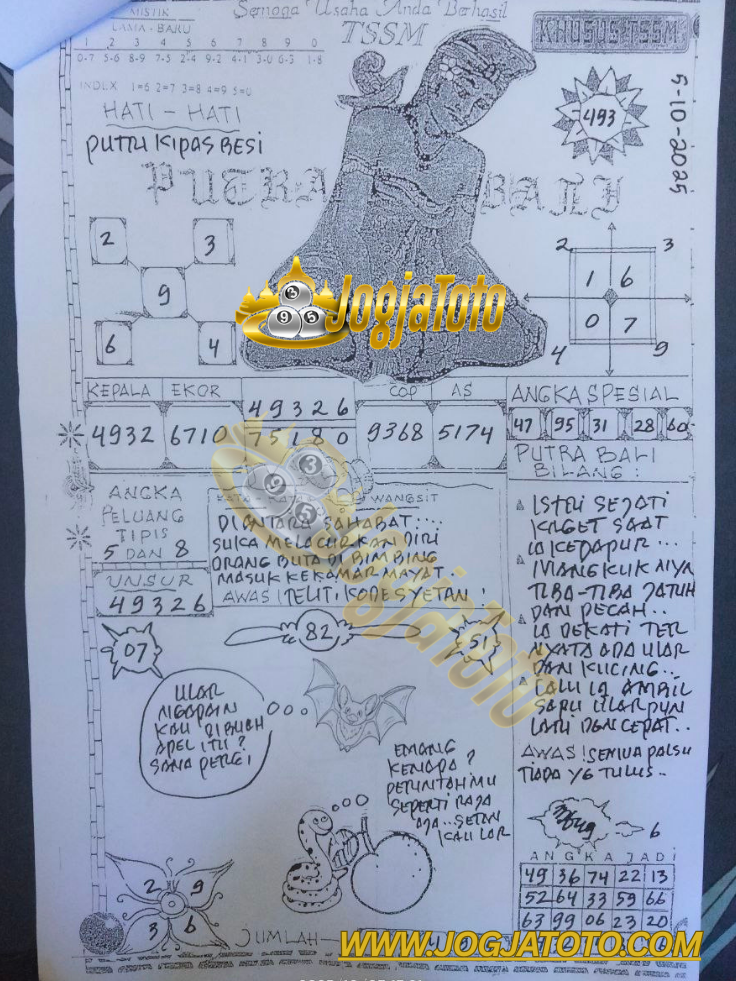 MISTIK
LAMA - BARU
1 2 3 4 5 6 7 8 9 0
0-7 5-6 8-9 7-5 2-4 9-2 4-1 3-0 6-3 1-8
INDEX 1=6 2=7 3=8 4=9 5=0
Semoga Usaha Anda Berhasil
TSSM
KHUSUS TSSM
HATI - HATI
PUTRI KIPAS BESI
493
5-10-2025
PUTRA BALI
2 3
9
6 4
2 3
1 6
0 7
4 9
JogjaToto
3
9 5
KEPALA EKOR COP AS
4932 6710 49326 9368 5174
75180
ANGKA SPESIAL
47 95 31 28 60
PUTRA BALI
BILANG :
ISTRI SEJATI
KAGET SAAT
IA KEDAPUR ...
MANGKUKNYA
TIBA-TIBA JATUH
DAN PECAH ..
IA DEKATI TER
NYATA ADA ULAR
DAN KUCING ..
LALU IA AMBIL
SAPU ULARPUN
LARI DGN CEPAT ..
AWAS ! SEMUA PALSU
TIADA YG TULUS ..
ANGKA
PELUANG
TIPIS
5 DAN 8
UNSUR
49326
KATA - KATA WANGSIT
DIANTARA SAHABAT ....
SUKA MELACURKAN DIRI
ORANG BUTA DI BIMBING
MASUK KEKAMAR MAYAT .
AWAS ! TELITI KODE SYETAN !
3
9 5
JogjaToto
07
82
51
ULAR
NGAPAIN
KAU DIBUAH
APEL ITU ?
SANA PERGI
EMANG
KENAPA ?
PERINTAHMU
SEPERTI RAJA
AJA ... SETAN
KAU LAR
6
ANGKA JADI
49 36 74 22 13
52 64 33 59 66
63 99 06 23 20
2 XV 9
3 6
JUMLAH -
WWW.JOGJATOTO.COM